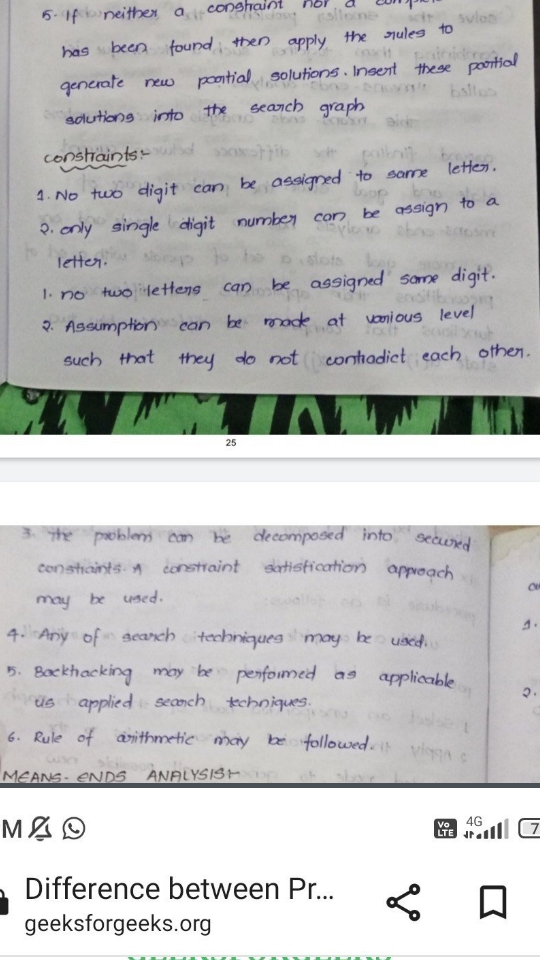 5. If neither a constraint nor a
has been found, then apply the rules to
generate new partial solutions. Insert these partial
solutions into the search graph
constraints:-
1. No two digit can be assigned to same letter.
2. only single digit number can be assign to a
letter.
1. no two letters can be assigned same digit.
2. Assumption can be made at various level
such that they do not contradict each other.
25
3. The problem can be decomposed into secured
constraints. A constraint satisfication approach
may be used.
4. Any of search techniques may be used.
5. Backhacking may be performed as applicable
us applied search techniques.
6. Rule of arithmetic may be followed.
MEANS-ENDS ANALYSIS:-
1.
2.
M
Vo LTE 4G 7
Difference between Pr...
geeksforgeeks.org